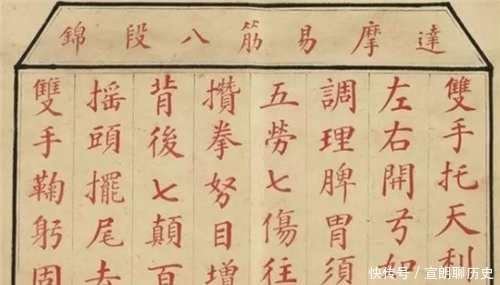 達摩易筋八段錦
雙手托天利
左右開弓如
調理脾胃須
五勞七傷往
攢拳努目增
背後七顛百
搖頭擺尾去
雙手鞠躬固
快传号 / 宣朗聊历史